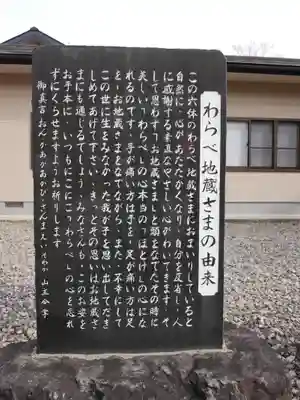 わらべ地蔵さまの由来
この六体のわらべ地蔵さまにおまいりしていると
自然に心があたたかくなり、自分を反省し、人
に感謝する素直なやさしい心がわいてきます。そ
して思わずお地蔵さまの頭をなでてたその時に
美しい「わらべ」の心、本当の「ほとけ」の心にな
れるのです。手が痛い方は手を、足が痛い方は足
を、お地蔵さまをなでながら、また、不幸にして
この世に生をみなかった我が子を思い出してだき
しめてあげて下さい。きっとその思いはお地蔵さ
まにも通じるでしょう。みなさんも、このお姿を
お手本に、いつもにこにこ「わらべ」の心を忘れ
ずにくらせますようお祈りします。
御真言 おん かあかあかび さんまんえい そわか